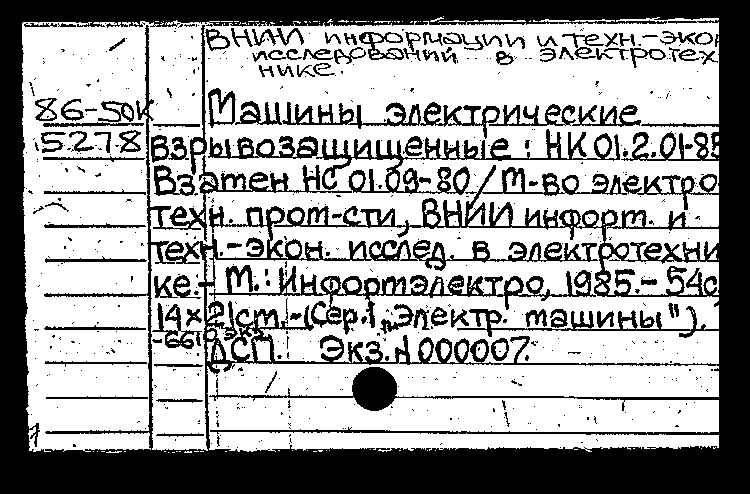 ВНИИ информации и техн.-экон
исследований в электротех
нике.
86-50к Машины электрические
5278 взрывозащищенные : НК 01.2.01-85
Взамен НС 01.09-80 / М-во электро
техн. пром-сти, ВНИИ информ. и
техн.-экон. исслед. в электротехни
ке.- М.: Информэлектро, 1985.- 54с
14×21см.-(Сер.1 „Электр. машины").
-661 экз.
ДСП. Экз.N 000007.